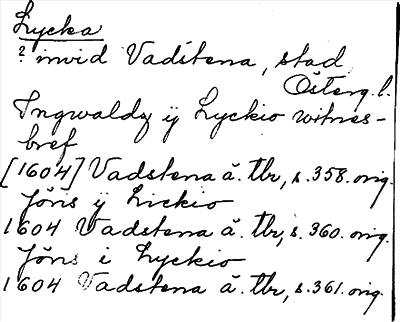 Lycka
? invid Vadstena, stad
Österg. l.
Ingwaldz ÿ Lyckio witnes-
bref
[1604] Vadstena ä. tbr, s. 358. orig.
Jöns ÿ Lickio
1604 Vadstena ä. tbr, s. 360. orig.
Jöns i Lyckio
1604 Vadstena ä. tbr, s. 361. orig.